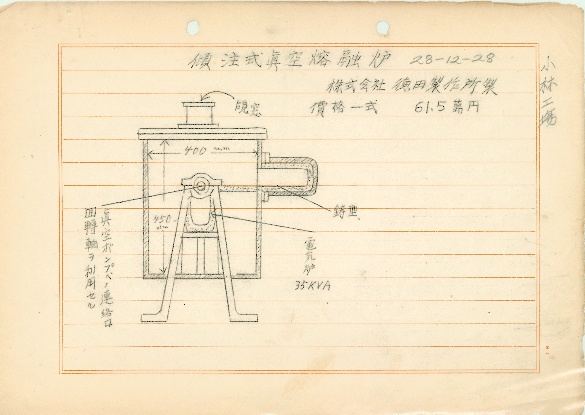 傾注式眞空熔融炉 28-12-28
株式会社 徳田製作所製
價格一式 61.5萬円
小林工場
覗窓
400 m.m
450 m.m
鋳型
電気炉
35KVA
真空ポンプヘノ連絡は
回轉軸ヲ利用セル